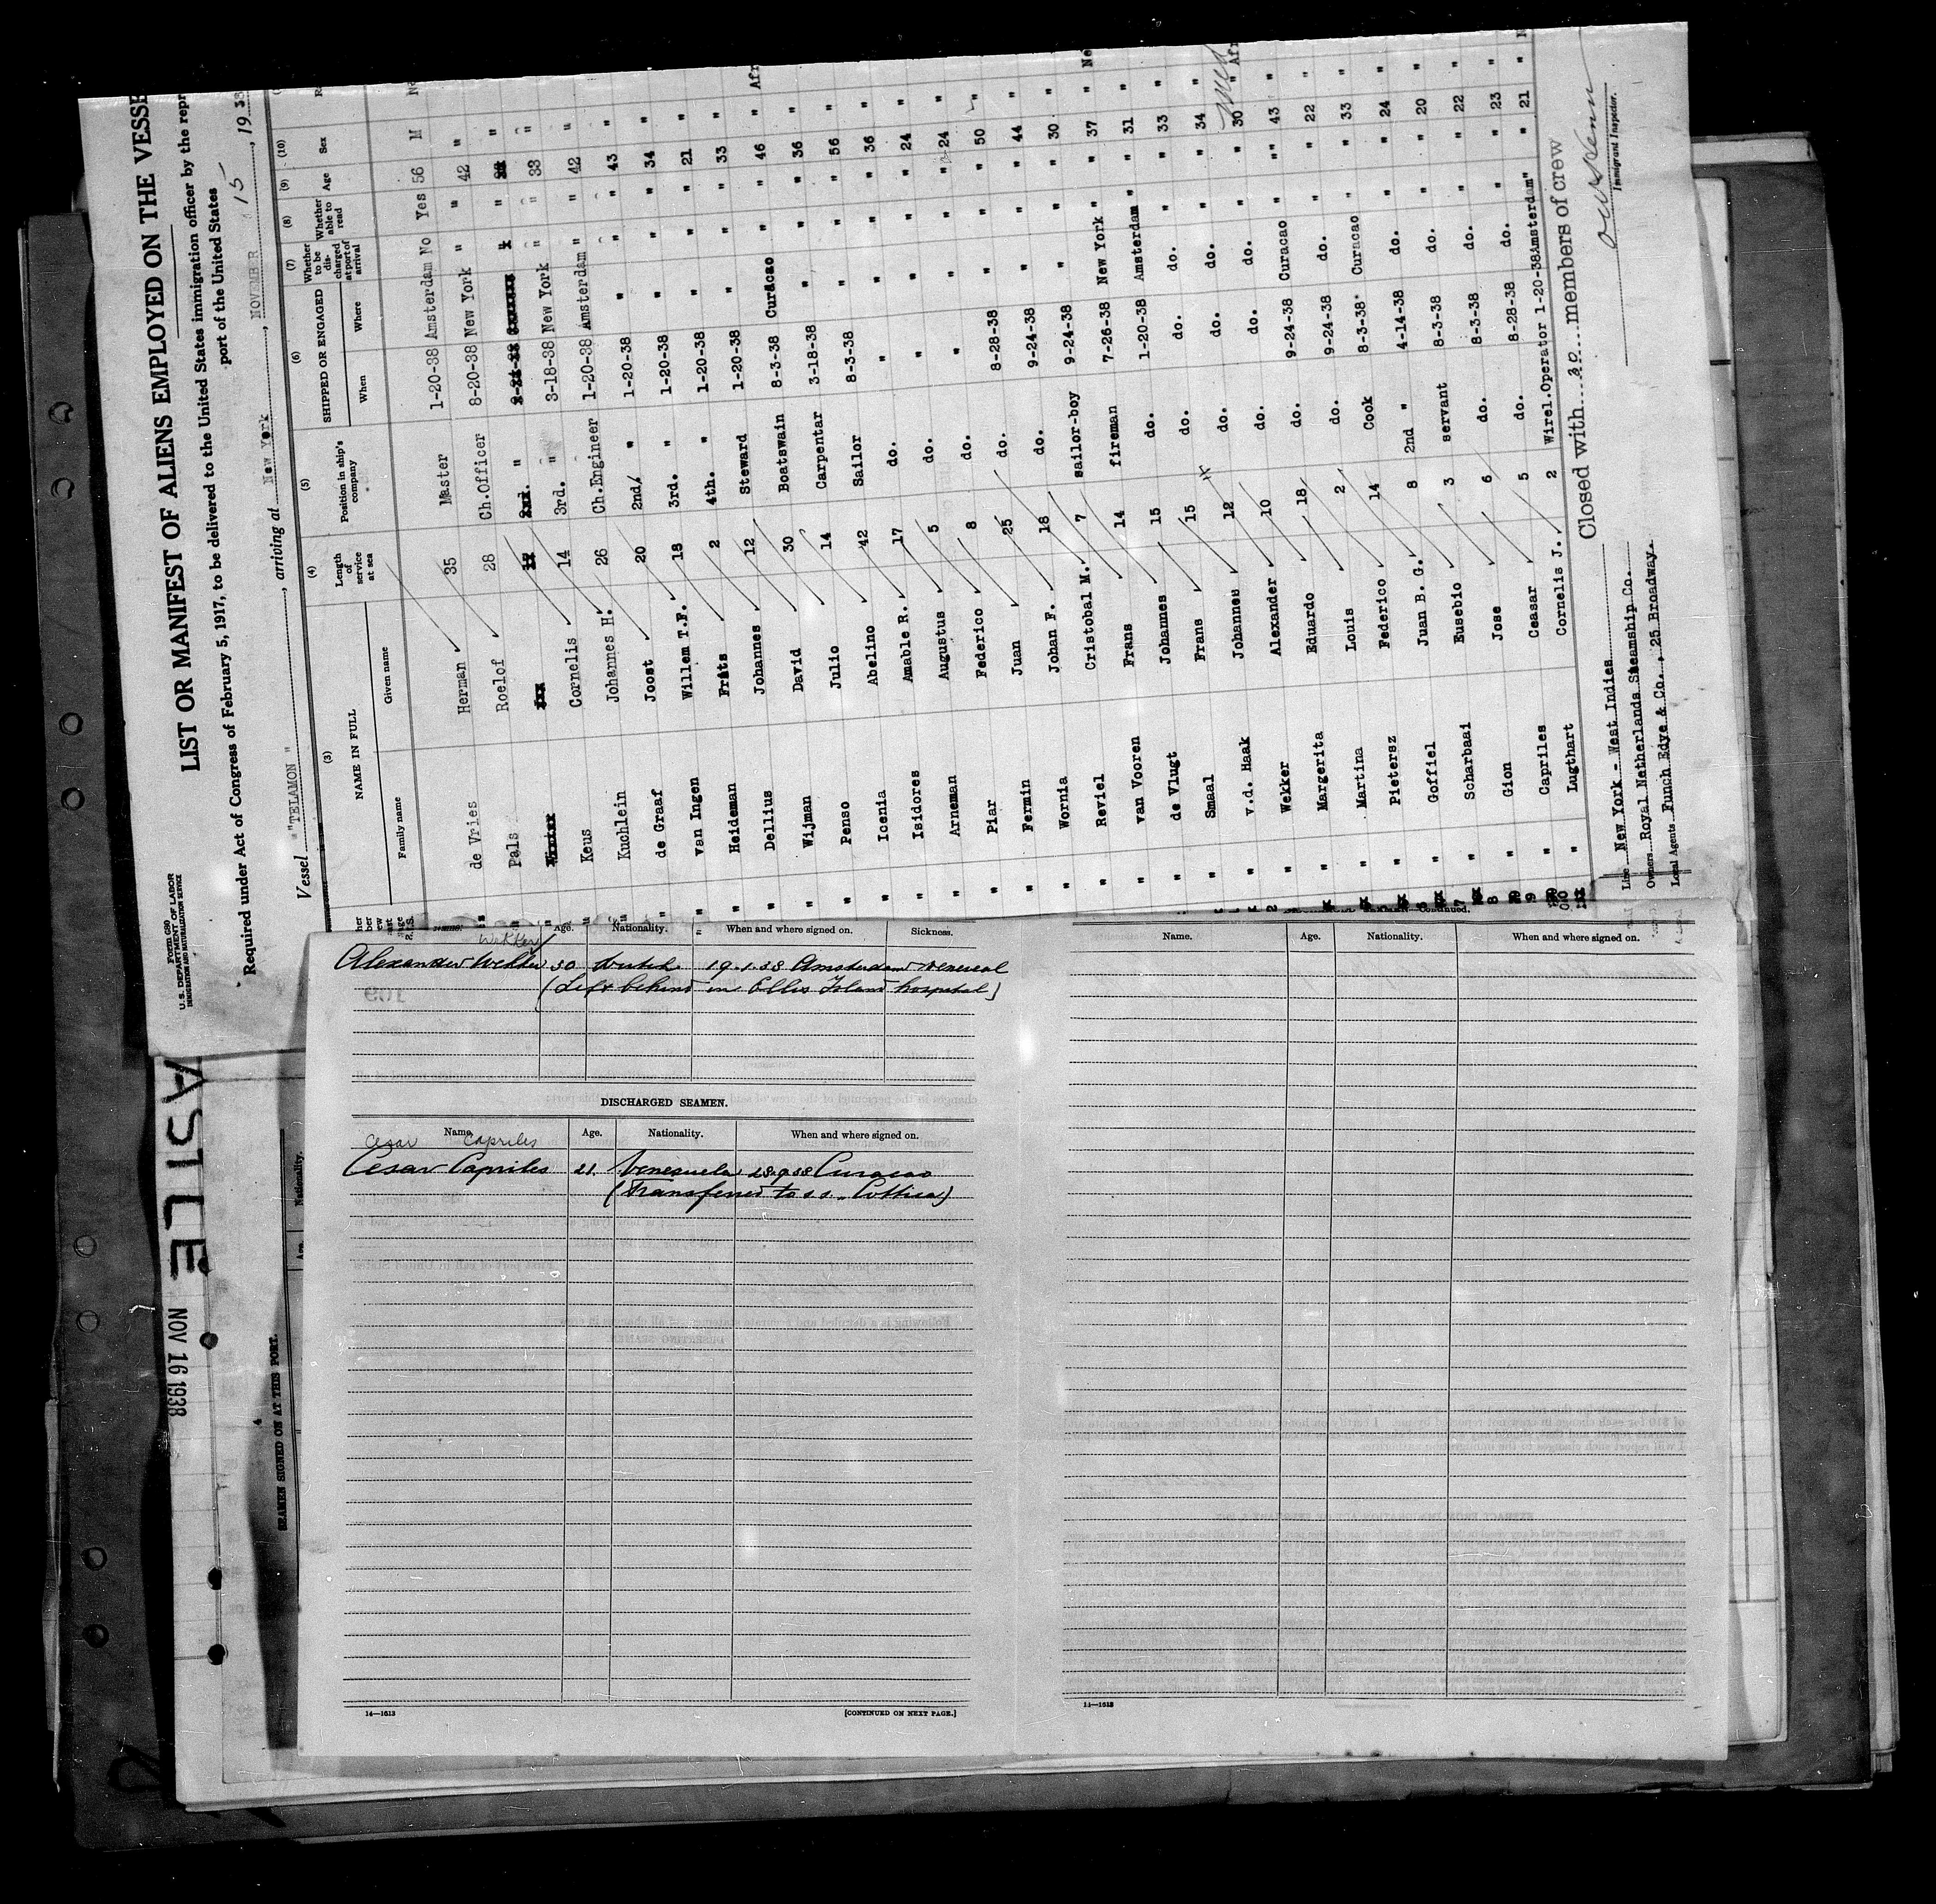 Form 680
U.S. DEPARTMENT OF LABOR
IMMIGRATION AND NATURALIZATION SERVICE
LIST OR MANIFEST OF ALIENS EMPLOYED ON THE VESSE
Required under Act of Congress of February 5, 1917, to be delivered to the United States immigration officer by the repr
port of the United States
Vessel "TELAMON", arriving at New York, NOVEMBER 15, 1938
(3) (4) (5) (6) (7) (8) (9) (10)
NAME IN FULL Length of service at sea Position in ship's company SHIPPED OR ENGAGED Whether to be discharged at port of arrival Whether able to read Age Sex
Family name Given name When Where
de Vries Herman 35 Master 1-20-38 Amsterdam No Yes 56 M
Pals Roelof 28 Ch.Officer 8-20-38 New York " " 42 "
Keus Cornelis 14 3rd. " 3-18-38 New York " " 33 "
Kuchlein Johannes H. 26 Ch.Engineer 1-20-38 Amsterdam " " 42 "
de Graaf Joost 20 2nd " 1-20-38 " " " 43 "
van Ingen Willem T.F. 18 3rd. " 1-20-38 " " " 34 "
Heideman Frits 2 4th. " 1-20-38 " " " 21 "
Dellius Johannes 12 Steward 1-20-38 " " " 33 "
Wijman David 30 Boatswain 8-3-38 Curacao " " 46 " Afr
Penso Julio 14 Carpentar 3-18-38 " " " 36 "
Icenia Abelino 42 Sailor 8-3-38 " " " 56 "
Isidores Amable R. 17 do. " " " " 36 "
Arneman Augustus 5 do. " " " " 24 "
Piar Federico 8 do. " " " " 24 "
Fermin Juan 25 do. 8-28-38 " " " 50 "
Wornia Johan F. 18 do. 9-24-38 " " " 44 "
Reviel Cristobal M. 7 sailor-boy 9-24-38 " " " 30 "
van Vooren Frans 14 fireman 7-26-38 New York " " 37 " Ne
de Vlugt Johannes 15 do. 1-20-38 Amsterdam " " 31 "
Smaal Frans 15 do. do. do. " " 33 "
v.d. Haak Johannes 12 do. do. do. " " 34 "
Wekker Alexander 10 do. do. do. " " 30 " Afr
Margerita Eduardo 18 do. 9-24-38 Curacao " "" 43 "
Martina Louis 2 do. 9-24-38 do. " " 22 "
Pietersz Federico 14 Cook 8-3-38 Curacao " " 33 "
Goffiel Juan B. G. 8 2nd " 4-14-38 do. " " 24 "
Scharbaai Eusebio 3 servant 8-3-38 do. " " 20 "
Gion Jose 6 do. 8-3-38 do. " " 22 "
Capriles Ceasar 5 do. 8-28-38 do. " " 23 "
Lugthart Cornelis J. 2 Wirel.Operator 1-20-38 Amsterdam " " 21 "
Closed with 30 members of crew
Immigrant Inspector.
Line New York - West Indies
Owners Royal Netherlands Steamship Co.
Local Agents Funch Edye & Co., 25 Broadway.
Age. Nationality. When and where signed on. Sickness.
Wekker
Alexander Wekker 30 Dutch 19.1.38 Amsterdam Venereal
(Left behind in Ellis Island hospital)
DISCHARGED SEAMEN.
Name. Age. Nationality. When and where signed on.
Cesar Capriles
Cesar Capriles 21 Venezuela 28.9.38 Curacao
(Transferred to s.s. Cottica)
14—1613
[CONTINUED ON NEXT PAGE.]
Continued.
Name. Age. Nationality. When and where signed on.
14—1613
ASTLE
NOV 16 1938
SEAMEN SIGNED ON AT THIS PORT.
Nationality.
Age.